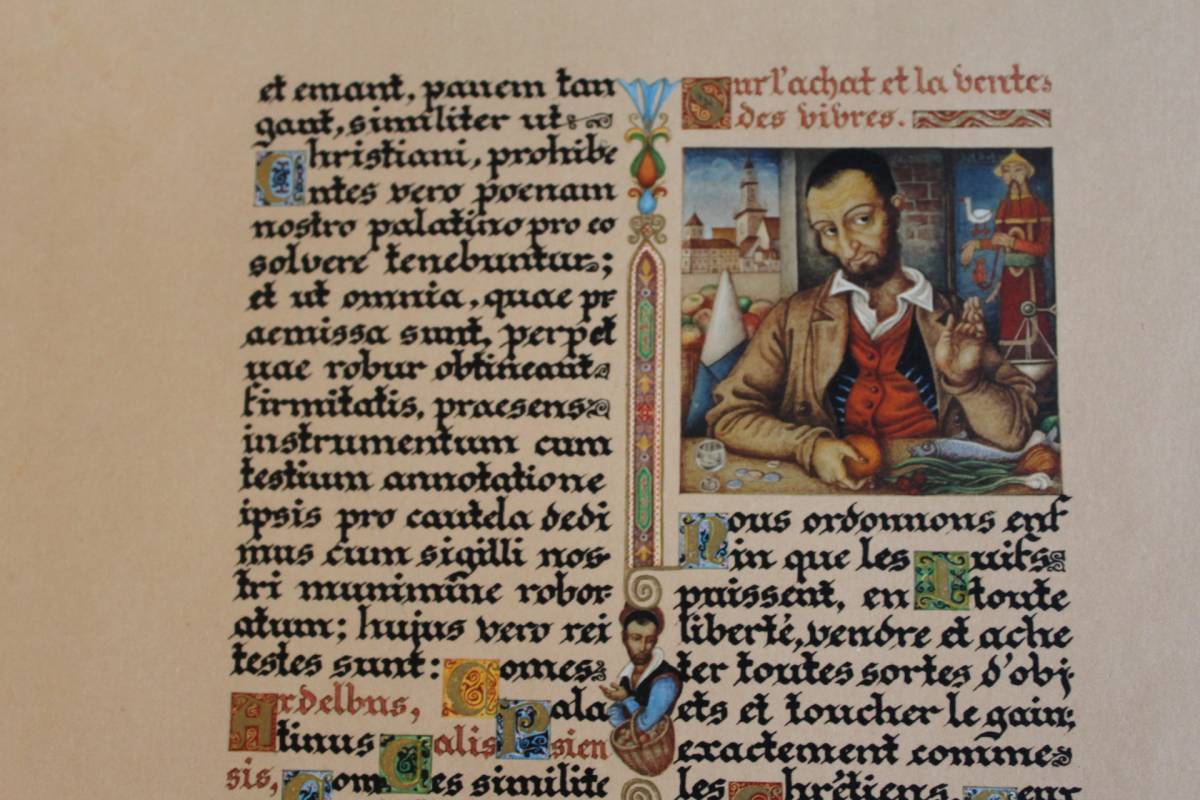 et emant, panem tan
gant, similiter ut
Christiani, prohibe
ntes vero poenam
nostro palatino pro eo
solvere tenebuntur;
et ut omnia, quae pr
aemissa sunt, perpet
uae robur obtineant
firmitatis, praesens
instrumentum cum
testium annotatione
ipsis pro cautela dedi
mus cum sigilli nos
tri munimine robor
atum; hujus vero rei
testes sunt: Comes
Ardelbus, Pala
tinus Calis Psien
sis, Comes similite
Sur l'achat et la vente
des vivres.
Nous ordonnons enf
in que les Juifs
puissent, en toute
liberté, vendre et ache
ter toutes sortes d'obj
ets et toucher le gain,
exactement comme
les Chrétiens,